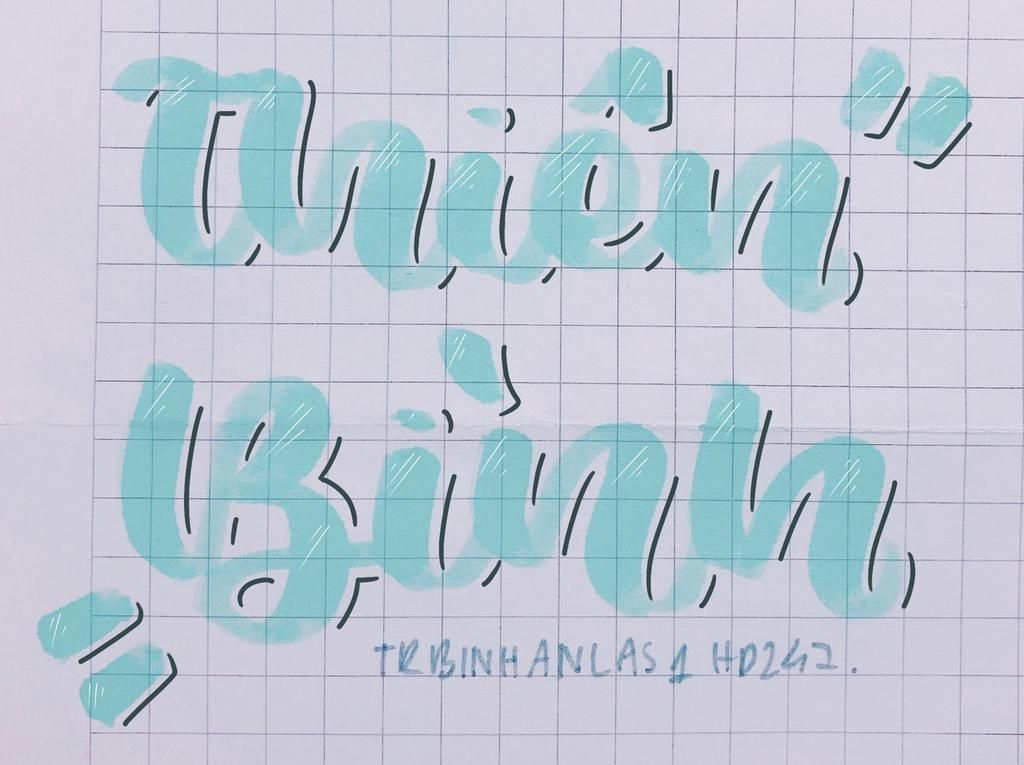 Thiên
Bình
TRBINHANLAS1 HD247.